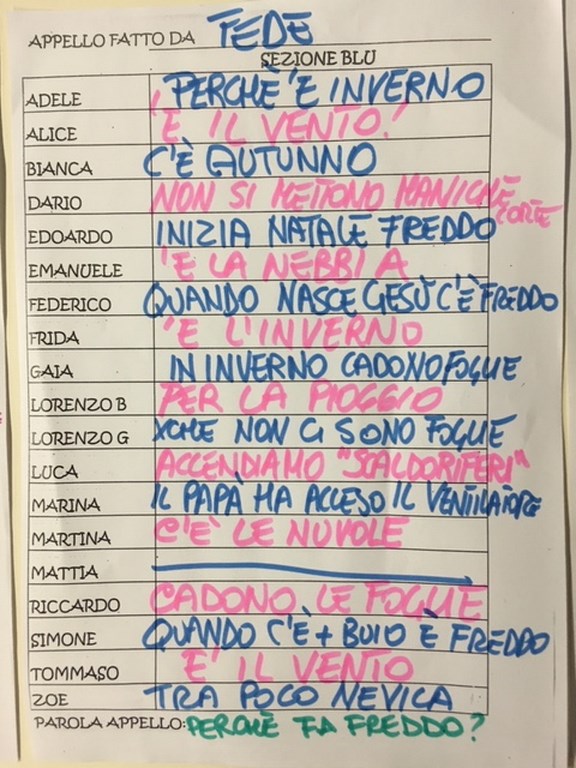 APPELLO FATTO DA FEDE
SEZIONE BLU
ADELE PERCHÈ 'E INVERNO
ALICE 'E IL VENTO!
BIANCA C'È AUTUNNO
DARIO NON SI METTONO MANICHE CORTE
EDOARDO INIZIA NATALE FREDDO
EMANUELE 'E LA NEBBIA
FEDERICO QUANDO NASCE GESÙ C'È FREDDO
FRIDA 'E L'INVERNO
GAIA IN INVERNO CADONO FOGLIE
LORENZO B PER LA PIOGGIO
LORENZO G XCHE NON CI SONO FOGLIE
LUCA ACCENDIAMO "SCALDORIFERI"
MARINA IL PAPÀ HA ACCESO IL VENTILATORE
MARTINA C'È LE NUVOLE
MATTIA
RICCARDO CADONO LE FOGLIE
SIMONE QUANDO C'È + BUIO È FREDDO
TOMMASO E' IL VENTO
ZOE TRA POCO NEVICA
PAROLA APPELLO: PERCHÈ FA FREDDO?